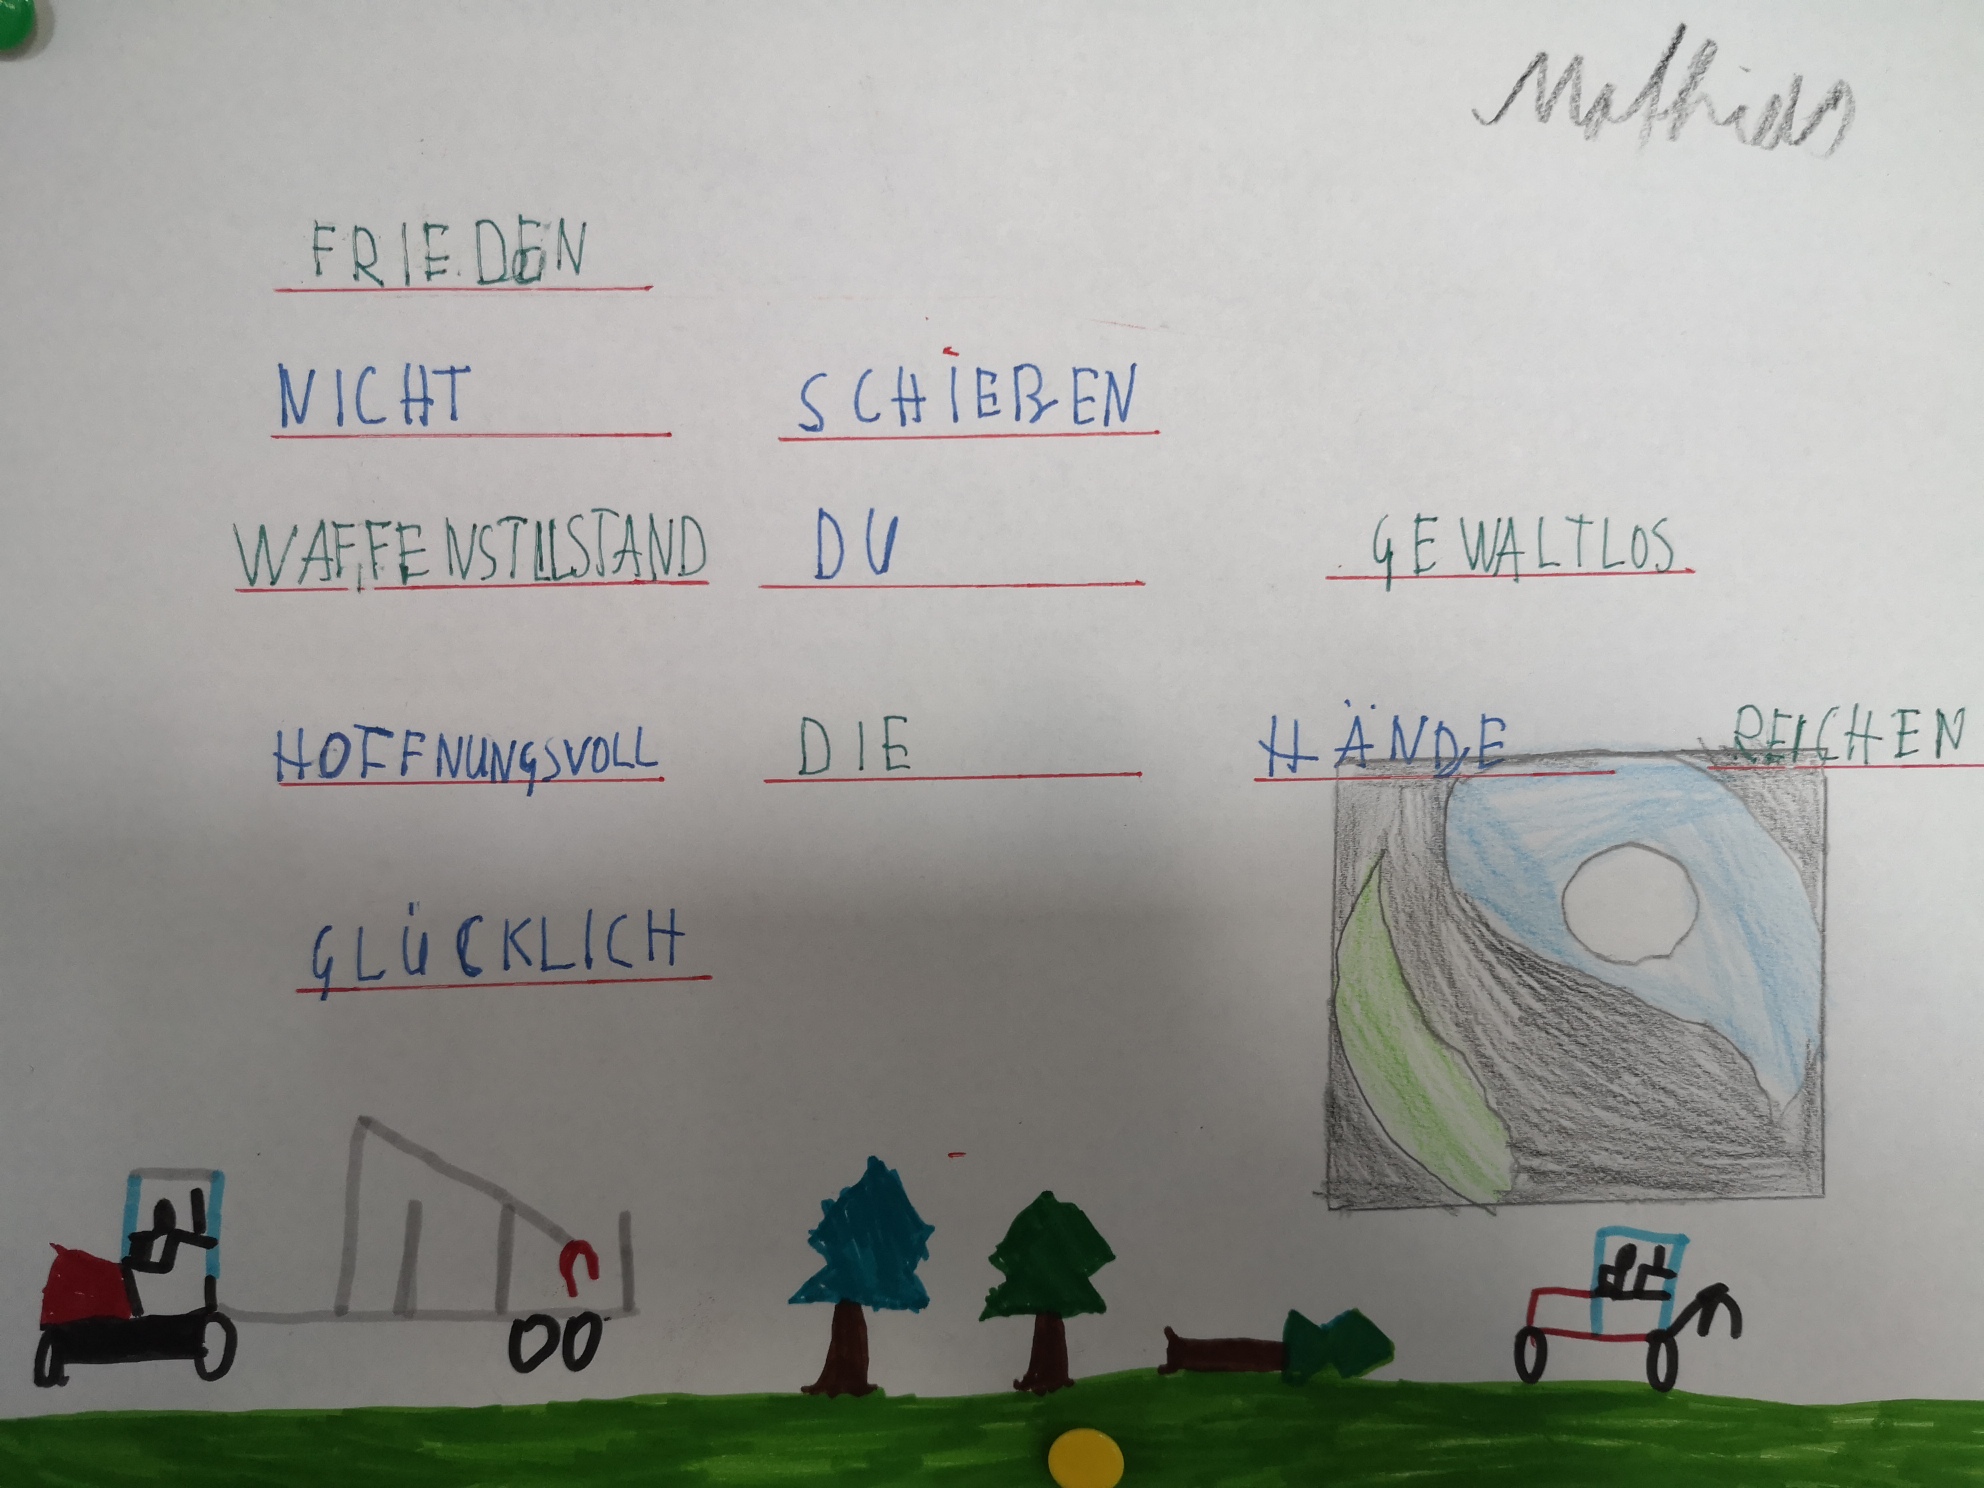 Mathias
FRIEDEN
NICHT SCHIEßEN
WAFFENSTILLSTAND DU GEWALTLOS
HOFFNUNGSVOLL DIE HÄNDE REICHEN
GLÜCKLICH